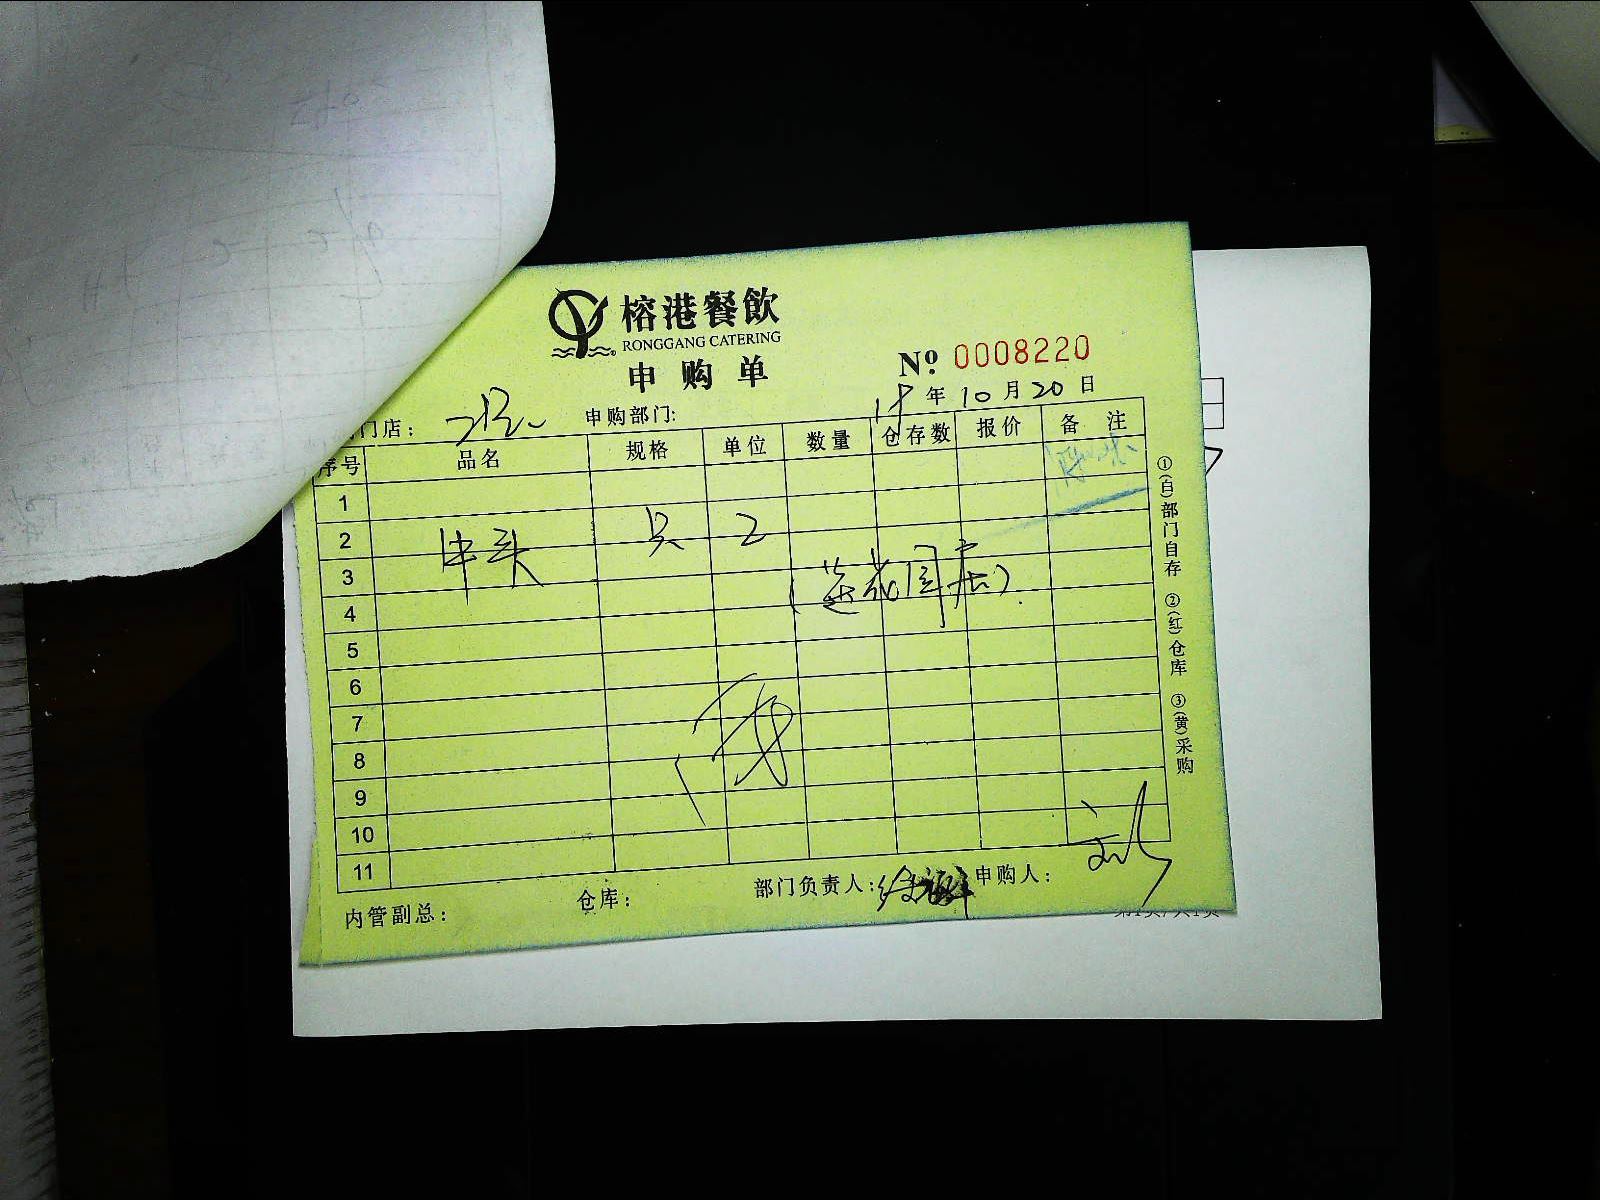 榕港餐飲
RONGGANG CATERING
申购单
Nº: 0008220
18年10月20日
门店: 申购部门:
序号 品名 规格 单位 数量 仓存数 报价 备注
1
2 牛头 只 2
3 (莲花国店)
4
5
6
7
8
9
10
11
内管副总: 仓库: 部门负责人: 申购人:
①(白)部门自存 ②(红)仓库 ③(黄)采购